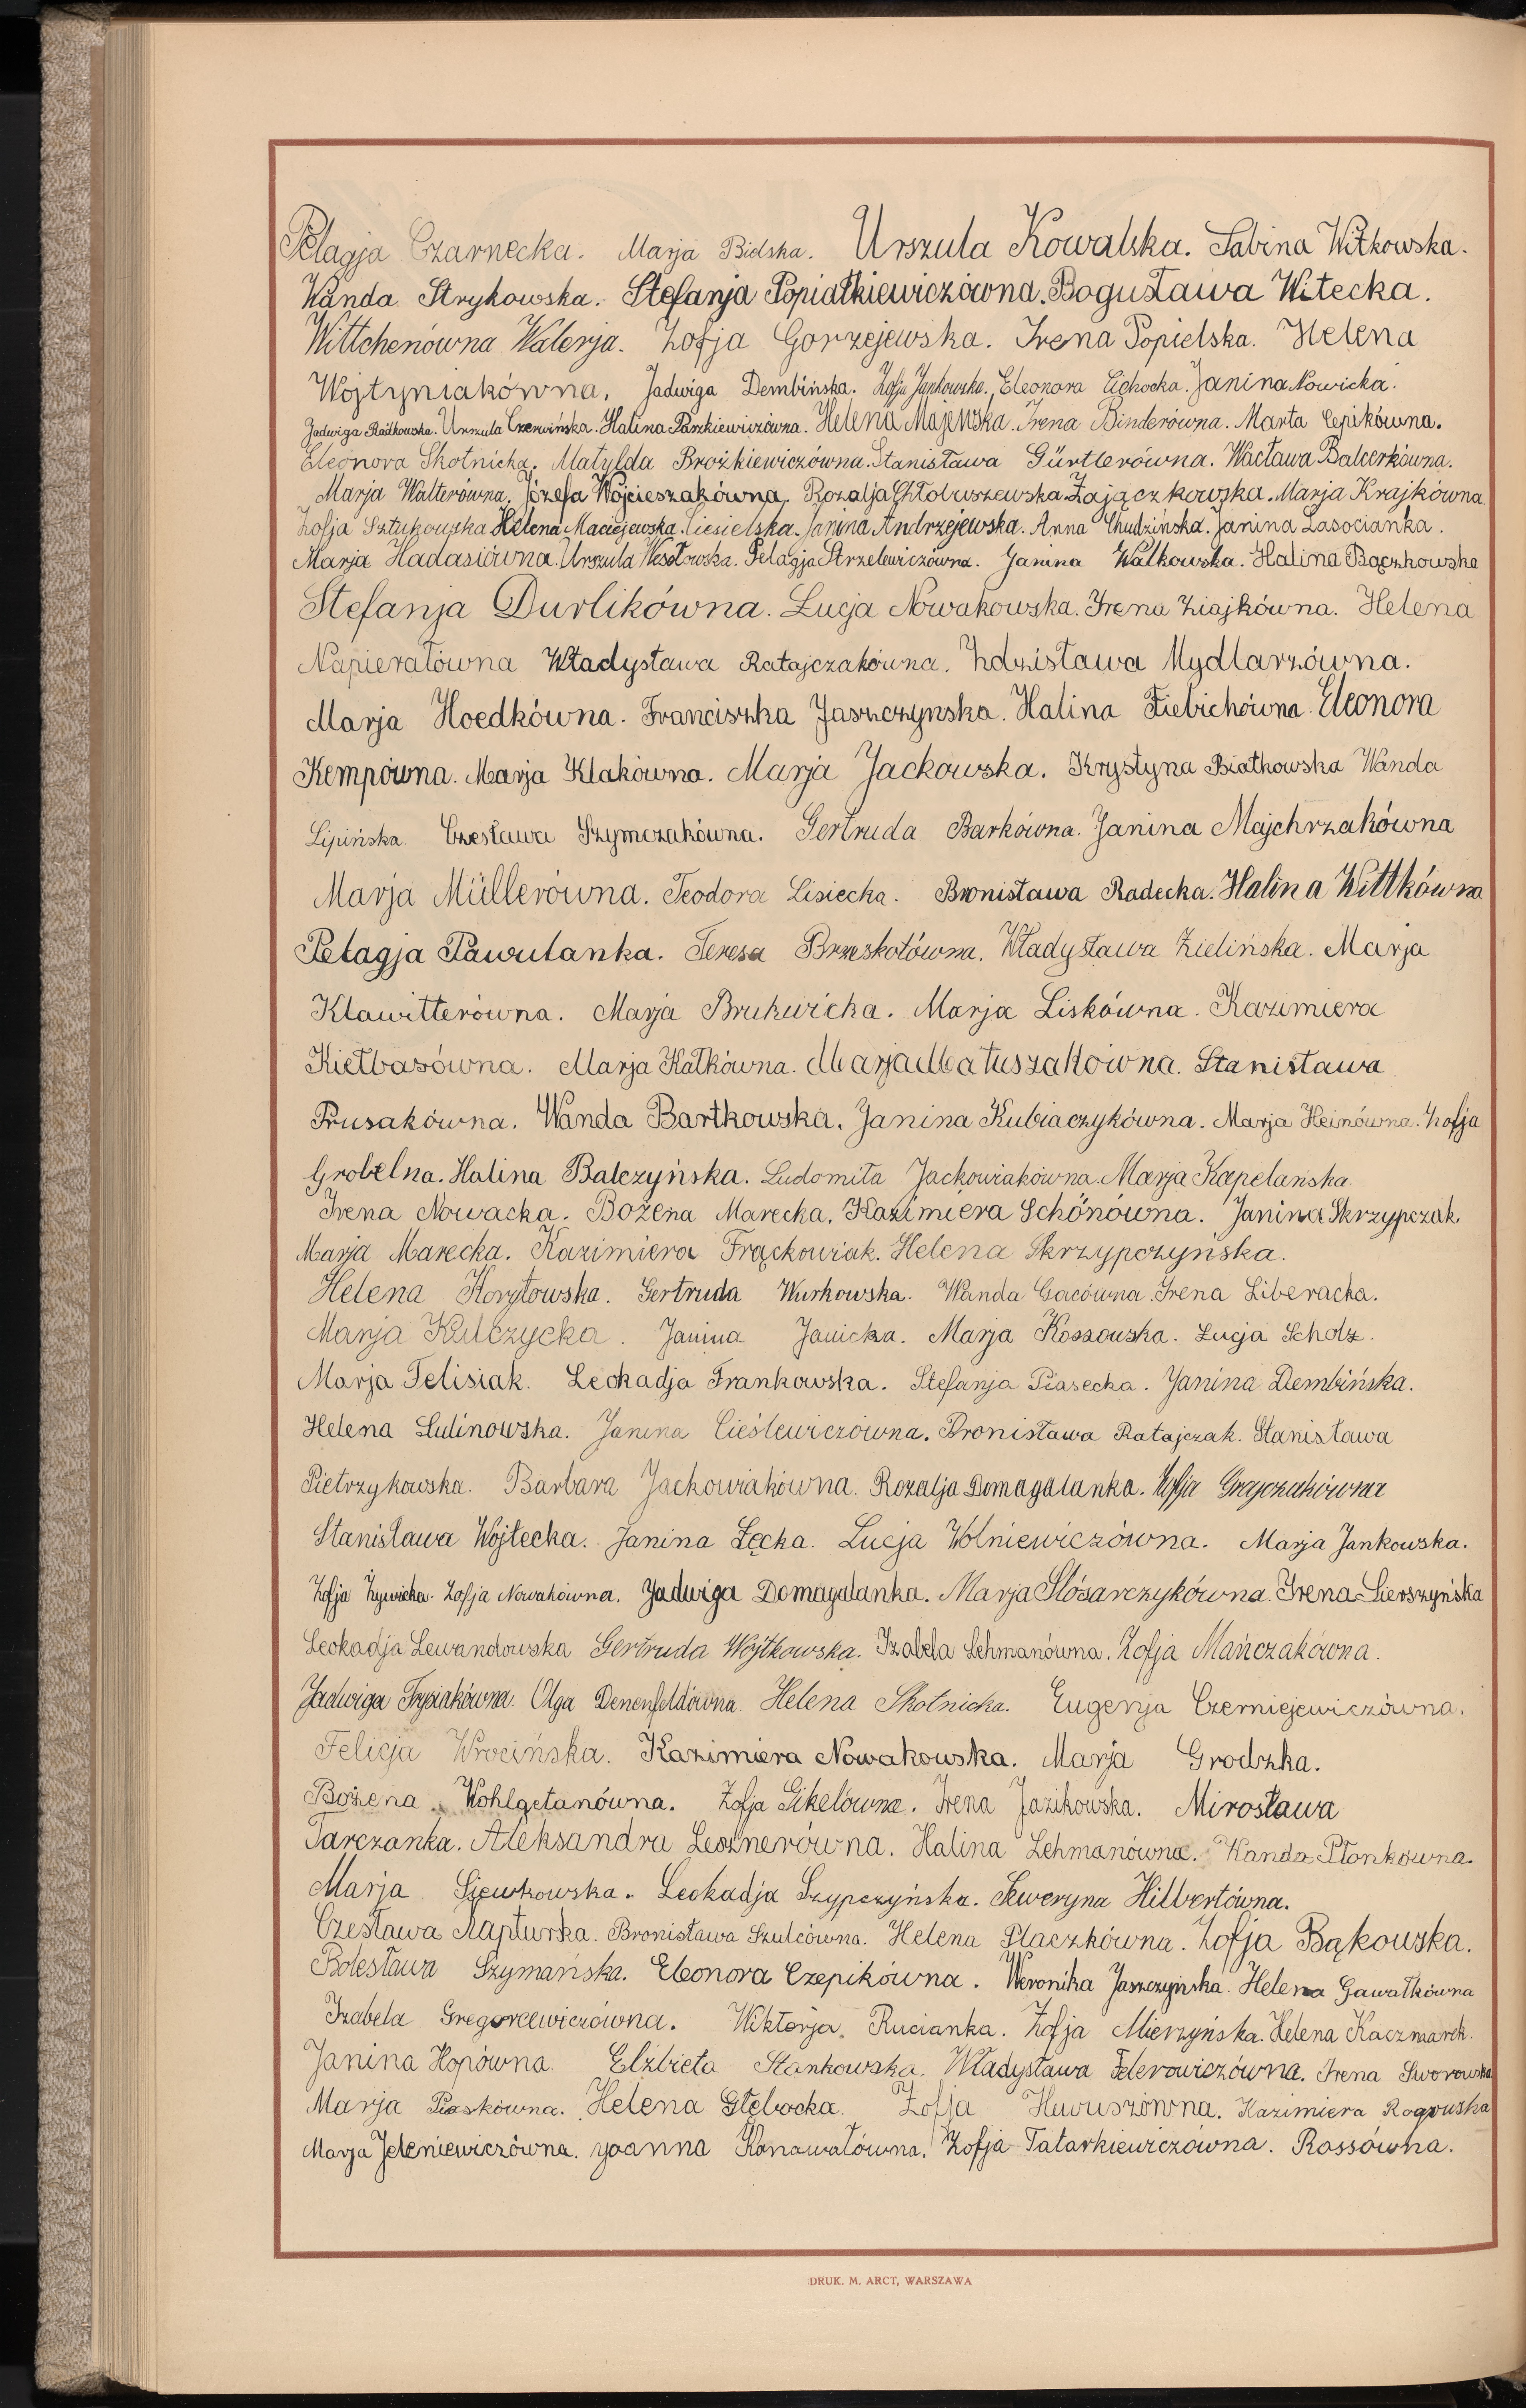 Pelagja Czarnecka. Marja Bidska. Urszula Kowalska. Sabina Witkowska.
Wanda Strykowska. Stefanja Popiałkiewiczówna. Bogusława Witecka.
Wittchenówna Walerja. Zofja Gorzejewska. Irena Popielska. Helena
Wojtyniakówna, Jadwiga Dembińska. Zofja Jankowska. Eleonora Cichocka. Janina Nowicka.
Jadwiga Radkowska. Urszula Czerwińska. Halina Paszkiewiczówna. Helena Majewska. Irena Binderówna. Marta Cepikówna.
Eleonora Skotnicka. Matylda Brożkiewiczówna. Stanisława Gürtlerówna. Wacława Balcerkówna.
Marja Walterówna. Józefa Wojcieszakówna. Rozalja Chłobuszewska. Zajączkowska. Marja Krajkówna.
Zofja Sztukowska Helena Maciejewska. Ciesielska. Janina Andrzejewska. Anna Chudzińska. Janina Lasocianka.
Marja Hadasiówna. Urszula Wesołowska. Pelagja Strzelewiczówna. Janina Walkowska. Halina Bączkowska
Stefanja Durlikówna. Lucja Nowakowska. Irena Ziajkówna. Helena
Napierałówna Władysława Ratajczakówna. Zdzisława Mydlarzówna.
Marja Hoedkówna. Franciszka Jaszczynska. Halina Fiebichówna. Eleonora
Kempówna. Marja Klakówna. Marja Jackowska. Krystyna Białkowska Wanda
Lipińska. Czesława Szymczakówna. Gertruda Barkówna. Janina Majchrzakówna
Marja Müllerówna. Teodora Lisiecka. Bronisława Radecka. Halina Wittkówna
Pelagja Pawulanka. Teresa Brzeskotówna. Władysława Zielińska. Marja
Klawitterówna. Marja Brukwicka. Marja Liskówna. Kazimiera
Kiełbasówna. Marja Kałkówna. Marja Matuszakówna. Stanisława
Prusakówna. Wanda Bartkowska. Janina Kubiaczykówna. Marja Heinówna. Zofja
Grobelna. Halina Balczyńska. Ludomiła Jackowiakówna. Marja Kapelańska.
Irena Nowacka. Bożena Marecka. Kazimiera Schönówna. Janina Skrzypczak.
Marja Marecka. Kazimiera Frąckowiak. Helena Skrzypczyńska.
Helena Korytowska. Gertruda Wurkowska. Wanda Gacówna. Irena Liberacka.
Marja Kulczycka. Janina Janicka. Marja Kossowska. Łucja Scholz.
Marja Felisiak. Leokadja Frankowska. Stefanja Piasecka. Janina Dembińska.
Helena Sulinowska. Janina Cieślewiczówna. Bronisława Ratajczak. Stanisława
Pietrzykowska. Barbara Jackowiakówna. Rozalja Domagalanka. Zofja Grajczakówna
Stanisława Wojtecka. Janina Łęcka. Lucja Wolniewiczówna. Marja Jankowska.
Zofja Żywicka. Zofja Nowakówna. Jadwiga Domagalanka. Marja Slósarczykówna. Irena Sierszyńska
Leokadja Lewandowska Gertruda Wojtkowska. Izabela Lehmanówna. Zofja Mańczakówna.
Jadwiga Frysiakówna. Olga Denenfeldówna. Helena Skotnicka. Eugenja Czerniejewiczówna.
Felicja Wrocińska. Kazimiera Nowakowska. Marja Grodzka.
Bożena Kohlgetanówna. Zofja Gikelówna. Irena Jazikowska. Mirosława
Tarczanka. Aleksandra Lesznerówna. Halina Lehmanówna. Wanda Płonkówna.
Marja Siewkowska. Leokadja Szypczyńska. Seweryna Hilbertówna.
Czesława Napturska. Bronisława Szulcówna. Helena Płaczkówna. Zofja Bąkowska.
Bolesława Szymańska. Eleonora Czepikówna. Weronika Jaszczyńska. Helena Gawałkówna
Izabela Gregorcewiczówna. Wiktorja Rucianka. Zofja Mierzyńska. Helena Kaczmarek.
Janina Hopówna. Elżbieta Stankowska. Władysława Felerowiczówna. Irena Sworowska
Marja Piaskówna. Helena Głębocka. Zofja Huvuszówna. Kazimiera Rogowska
Marja Jeleniewiczówna. Joanna Konowałówna. Zofja Tatarkiewiczówna. Rossówna.
DRUK. M. ARCT, WARSZAWA